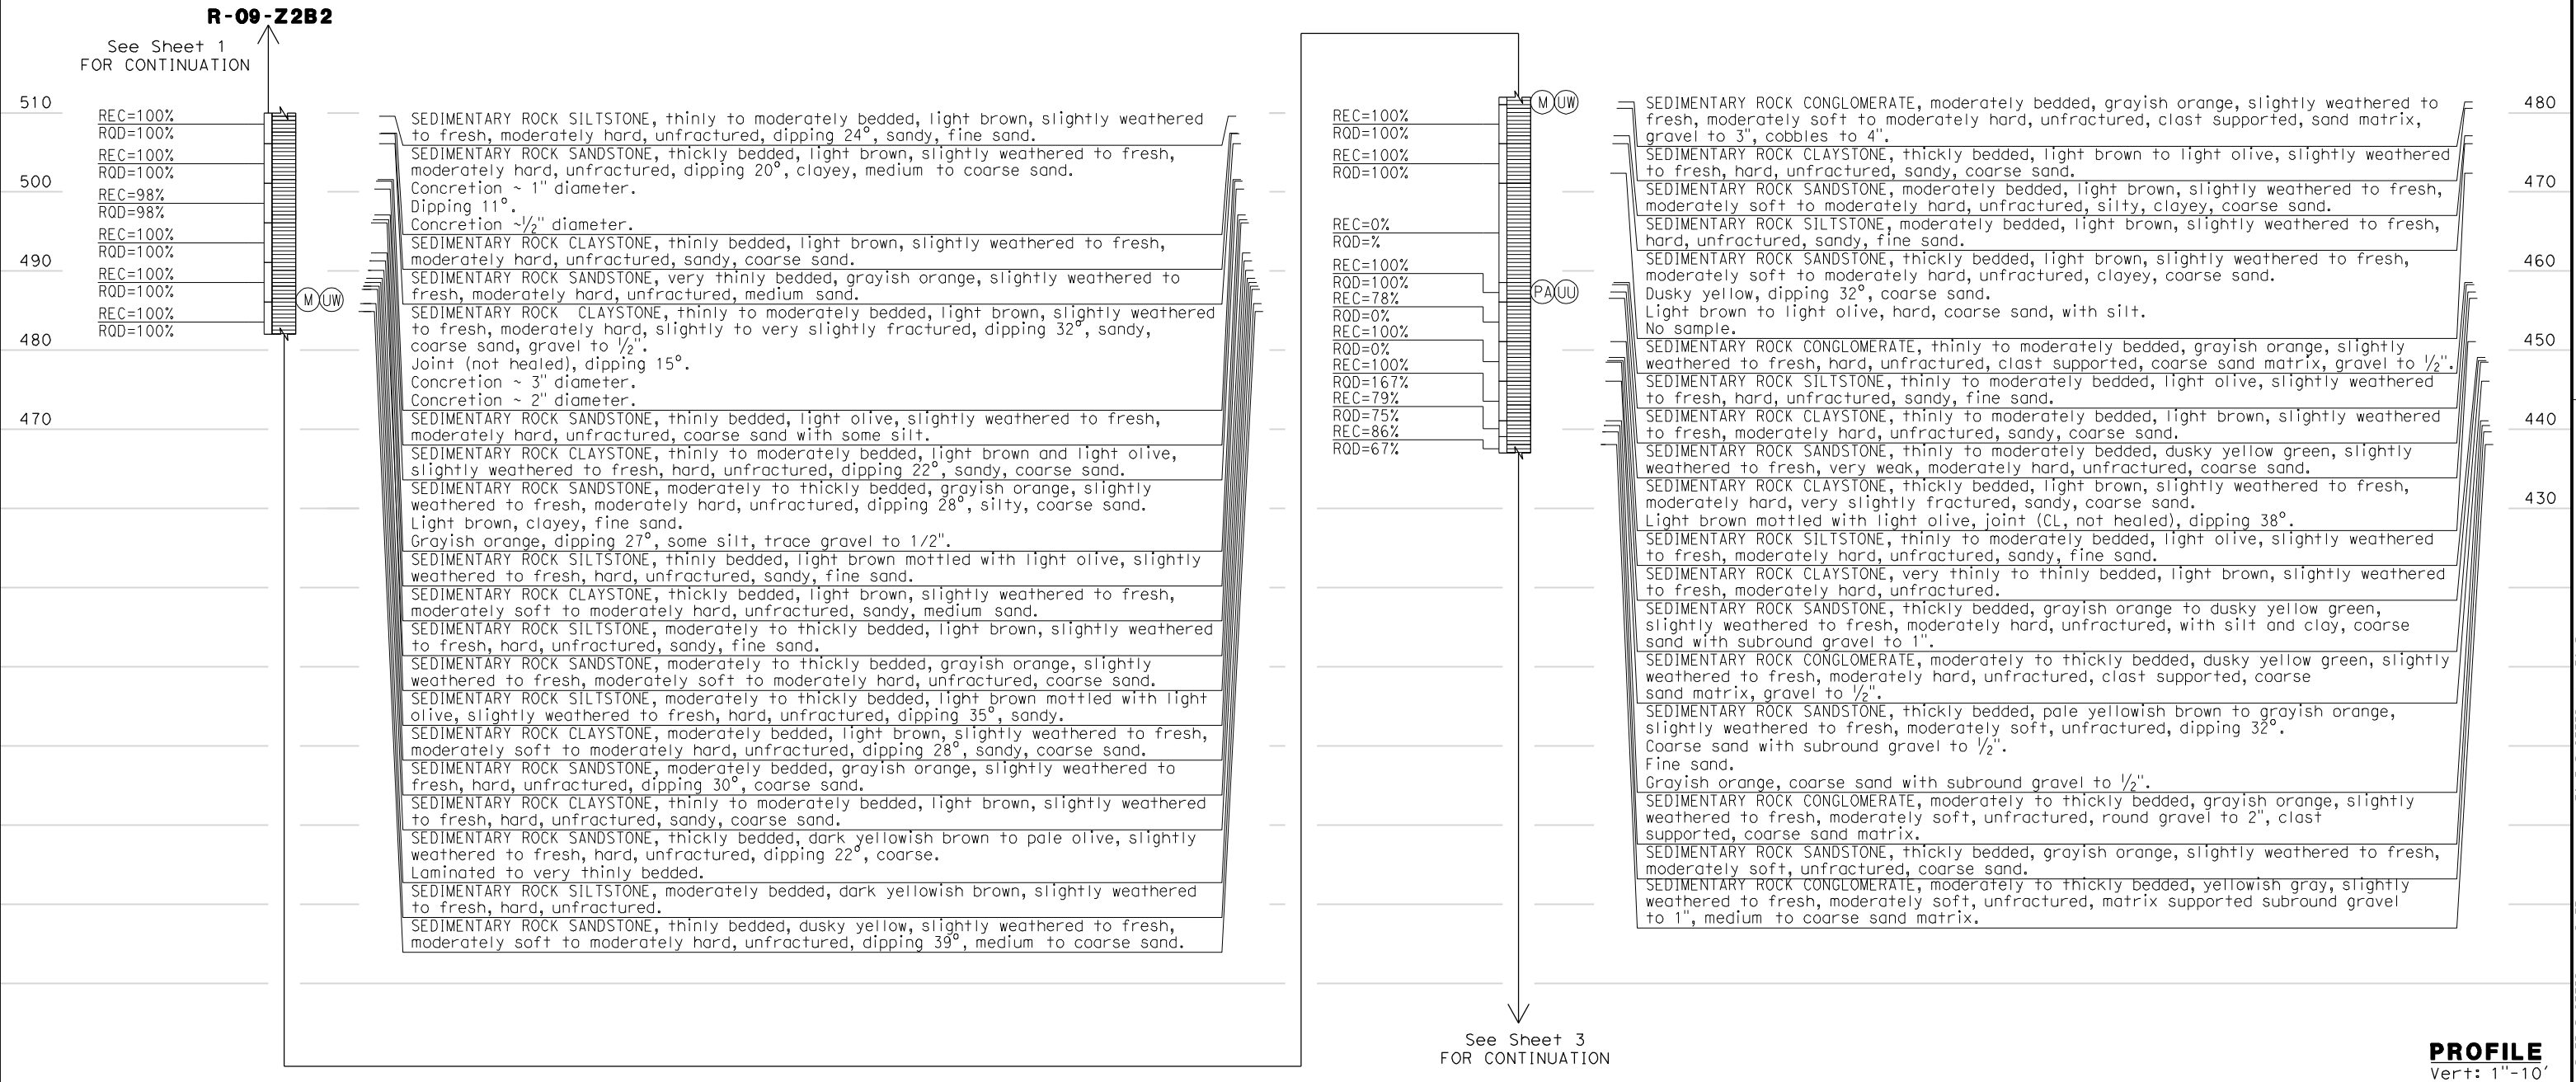 R-09-Z2B2
See Sheet 1
FOR CONTINUATION
510
500
490
480
470
REC=100%
RQD=100%
REC=100%
RQD=100%
REC=98%
RQD=98%
REC=100%
RQD=100%
REC=100%
RQD=100%
REC=100%
RQD=100%
M UW
SEDIMENTARY ROCK SILTSTONE, thinly to moderately bedded, light brown, slightly weathered
to fresh, moderately hard, unfractured, dipping 24°, sandy, fine sand.
SEDIMENTARY ROCK SANDSTONE, thickly bedded, light brown, slightly weathered to fresh,
moderately hard, unfractured, dipping 20°, clayey, medium to coarse sand.
Concretion ~ 1" diameter.
Dipping 11°.
Concretion ~½" diameter.
SEDIMENTARY ROCK CLAYSTONE, thinly bedded, light brown, slightly weathered to fresh,
moderately hard, unfractured, sandy, coarse sand.
SEDIMENTARY ROCK SANDSTONE, very thinly bedded, grayish orange, slightly weathered to
fresh, moderately hard, unfractured, medium sand.
SEDIMENTARY ROCK CLAYSTONE, thinly to moderately bedded, light brown, slightly weathered
to fresh, moderately hard, slightly to very slightly fractured, dipping 32°, sandy,
coarse sand, gravel to ½".
Joint (not healed), dipping 15°.
Concretion ~ 3" diameter.
Concretion ~ 2" diameter.
SEDIMENTARY ROCK SANDSTONE, thinly bedded, light olive, slightly weathered to fresh,
moderately hard, unfractured, coarse sand with some silt.
SEDIMENTARY ROCK CLAYSTONE, thinly to moderately bedded, light brown and light olive,
slightly weathered to fresh, hard, unfractured, dipping 22°, sandy, coarse sand.
SEDIMENTARY ROCK SANDSTONE, moderately to thickly bedded, grayish orange, slightly
weathered to fresh, moderately hard, unfractured, dipping 28°, silty, coarse sand.
Light brown, clayey, fine sand.
Grayish orange, dipping 27°, some silt, trace gravel to 1/2".
SEDIMENTARY ROCK SILTSTONE, thinly bedded, light brown mottled with light olive, slightly
weathered to fresh, hard, unfractured, sandy, fine sand.
SEDIMENTARY ROCK CLAYSTONE, thickly bedded, light brown, slightly weathered to fresh,
moderately soft to moderately hard, unfractured, sandy, medium sand.
SEDIMENTARY ROCK SILTSTONE, moderately to thickly bedded, light brown, slightly weathered
to fresh, hard, unfractured, sandy, fine sand.
SEDIMENTARY ROCK SANDSTONE, moderately to thickly bedded, grayish orange, slightly
weathered to fresh, moderately soft to moderately hard, unfractured, coarse sand.
SEDIMENTARY ROCK SILTSTONE, moderately to thickly bedded, light brown mottled with light
olive, slightly weathered to fresh, hard, unfractured, dipping 35°, sandy.
SEDIMENTARY ROCK CLAYSTONE, moderately bedded, light brown, slightly weathered to fresh,
moderately soft to moderately hard, unfractured, dipping 28°, sandy, coarse sand.
SEDIMENTARY ROCK SANDSTONE, moderately bedded, grayish orange, slightly weathered to
fresh, hard, unfractured, dipping 30°, coarse sand.
SEDIMENTARY ROCK CLAYSTONE, thinly to moderately bedded, light brown, slightly weathered
to fresh, hard, unfractured, sandy, coarse sand.
SEDIMENTARY ROCK SANDSTONE, thickly bedded, dark yellowish brown to pale olive, slightly
weathered to fresh, hard, unfractured, dipping 22°, coarse.
Laminated to very thinly bedded.
SEDIMENTARY ROCK SILTSTONE, moderately bedded, dark yellowish brown, slightly weathered
to fresh, hard, unfractured.
SEDIMENTARY ROCK SANDSTONE, thinly bedded, dusky yellow, slightly weathered to fresh,
moderately soft to moderately hard, unfractured, dipping 39°, medium to coarse sand.
REC=100%
RQD=100%
REC=100%
RQD=100%
REC=0%
RQD=%
REC=100%
RQD=100%
REC=78%
RQD=0%
REC=100%
RQD=0%
REC=100%
RQD=167%
REC=79%
RQD=75%
REC=86%
RQD=67%
M UW
PA UU
See Sheet 3
FOR CONTINUATION
SEDIMENTARY ROCK CONGLOMERATE, moderately bedded, grayish orange, slightly weathered to
fresh, moderately soft to moderately hard, unfractured, clast supported, sand matrix,
gravel to 3", cobbles to 4".
SEDIMENTARY ROCK CLAYSTONE, thickly bedded, light brown to light olive, slightly weathered
to fresh, hard, unfractured, sandy, coarse sand.
SEDIMENTARY ROCK SANDSTONE, moderately bedded, light brown, slightly weathered to fresh,
moderately soft to moderately hard, unfractured, silty, clayey, coarse sand.
SEDIMENTARY ROCK SILTSTONE, moderately bedded, light brown, slightly weathered to fresh,
hard, unfractured, sandy, fine sand.
SEDIMENTARY ROCK SANDSTONE, thickly bedded, light brown, slightly weathered to fresh,
moderately soft to moderately hard, unfractured, clayey, coarse sand.
Dusky yellow, dipping 32°, coarse sand.
Light brown to light olive, hard, coarse sand, with silt.
No sample.
SEDIMENTARY ROCK CONGLOMERATE, thinly to moderately bedded, grayish orange, slightly
weathered to fresh, hard, unfractured, clast supported, coarse sand matrix, gravel to ½".
SEDIMENTARY ROCK SILTSTONE, thinly to moderately bedded, light olive, slightly weathered
to fresh, hard, unfractured, sandy, fine sand.
SEDIMENTARY ROCK CLAYSTONE, thinly to moderately bedded, light brown, slightly weathered
to fresh, moderately hard, unfractured, sandy, coarse sand.
SEDIMENTARY ROCK SANDSTONE, thinly to moderately bedded, dusky yellow green, slightly
weathered to fresh, very weak, moderately hard, unfractured, coarse sand.
SEDIMENTARY ROCK CLAYSTONE, thickly bedded, light brown, slightly weathered to fresh,
moderately hard, very slightly fractured, sandy, coarse sand.
Light brown mottled with light olive, joint (CL, not healed), dipping 38°.
SEDIMENTARY ROCK SILTSTONE, thinly to moderately bedded, light olive, slightly weathered
to fresh, moderately hard, unfractured, sandy, fine sand.
SEDIMENTARY ROCK CLAYSTONE, very thinly to thinly bedded, light brown, slightly weathered
to fresh, moderately hard, unfractured.
SEDIMENTARY ROCK SANDSTONE, thickly bedded, grayish orange to dusky yellow green,
slightly weathered to fresh, moderately hard, unfractured, with silt and clay, coarse
sand with subround gravel to 1".
SEDIMENTARY ROCK CONGLOMERATE, moderately to thickly bedded, dusky yellow green, slightly
weathered to fresh, moderately hard, unfractured, clast supported, coarse
sand matrix, gravel to ½".
SEDIMENTARY ROCK SANDSTONE, thickly bedded, pale yellowish brown to grayish orange,
slightly weathered to fresh, moderately soft, unfractured, dipping 32°.
Coarse sand with subround gravel to ½".
Fine sand.
Grayish orange, coarse sand with subround gravel to ½".
SEDIMENTARY ROCK CONGLOMERATE, moderately to thickly bedded, grayish orange, slightly
weathered to fresh, moderately soft, unfractured, round gravel to 2", clast
supported, coarse sand matrix.
SEDIMENTARY ROCK SANDSTONE, thickly bedded, grayish orange, slightly weathered to fresh,
moderately soft, unfractured, coarse sand.
SEDIMENTARY ROCK CONGLOMERATE, moderately to thickly bedded, yellowish gray, slightly
weathered to fresh, moderately soft, unfractured, matrix supported subround gravel
to 1", medium to coarse sand matrix.
480
470
460
450
440
430
PROFILE
Vert: 1"-10'